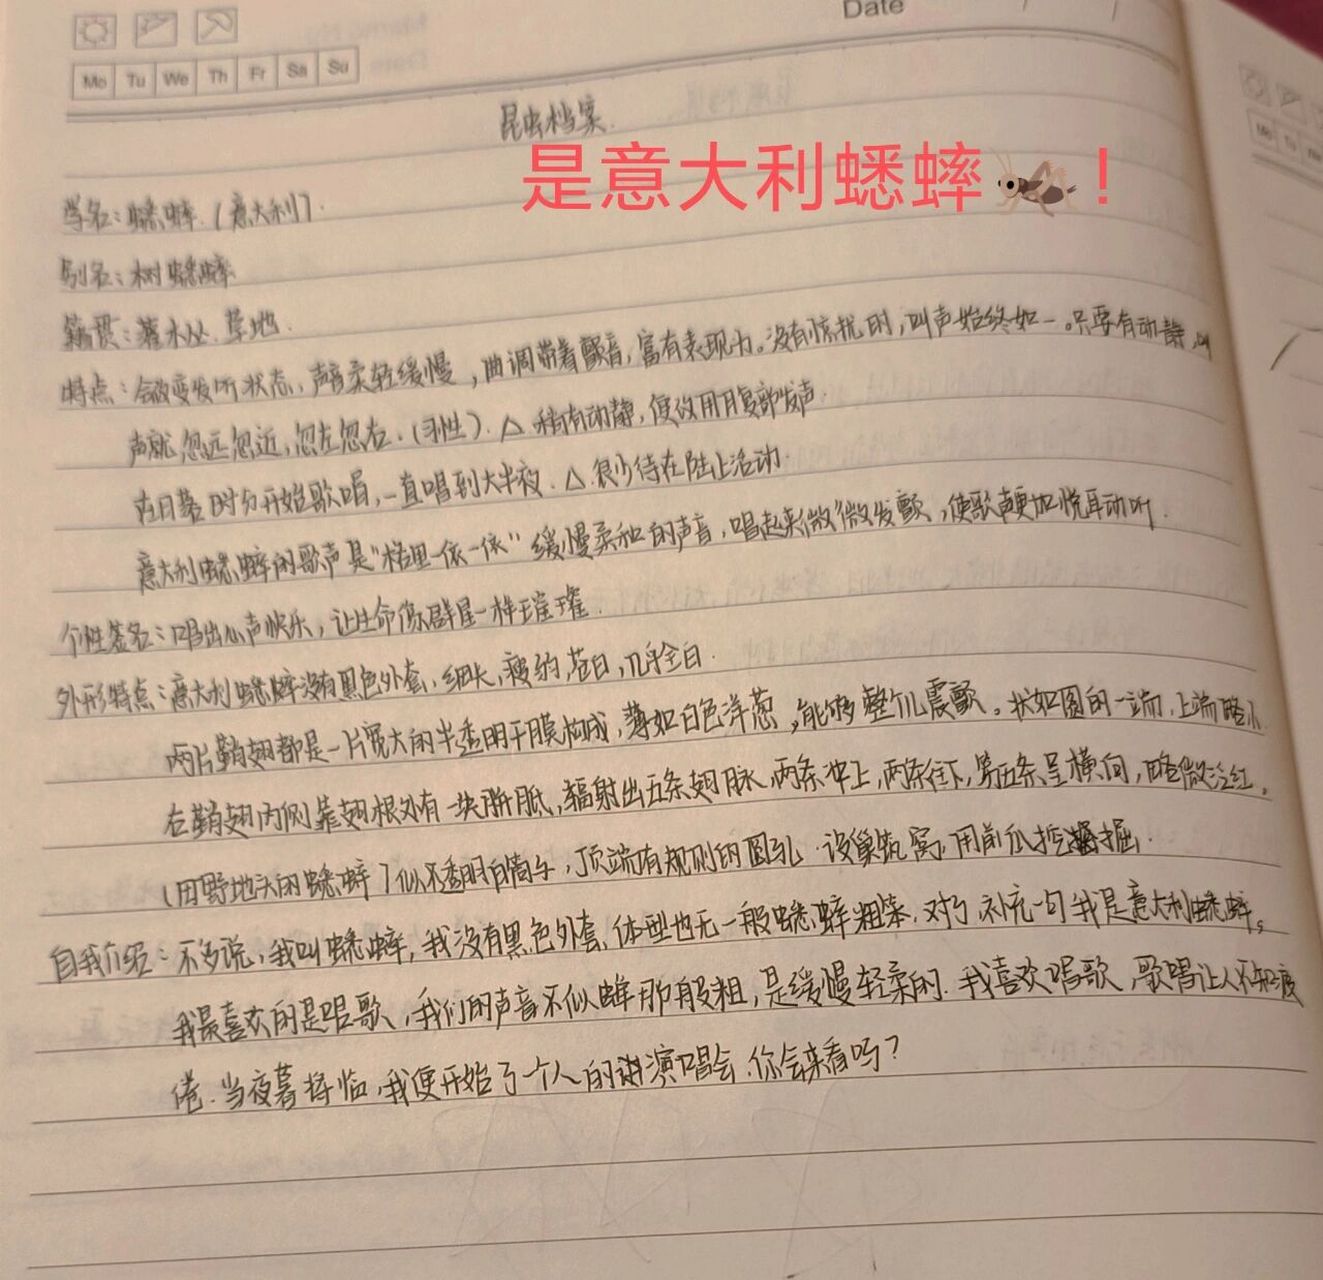 Date
Mo Tu We Th Fr Sa Su
昆虫档案.
是意大利蟋蟀🦗！
学名：蟋蟀.（意大利）.
别名：树蟋蟀
籍贯：灌木丛.草地.
特点：会改变发听状态，声音柔轻缓慢，曲调带着颤音，富有表现力。没有惊扰时，叫声始终如一。只要有动静，叫
声就忽远忽近，忽左忽右.（习性）.△ 稍有动静，便改用腹部发声.
在日落时分开始歌唱，一直唱到大半夜.△.很少待在陆上活动.
意大利蟋蟀的歌声是“格里一依一依”缓慢柔和的声音，唱起来微微发颤，使歌声更加悦耳动听.
个性签名：唱出心声快乐，让生命像群星一样璀璨.
外形特点：意大利蟋蟀没有黑色外套，细长，瘦弱，苍白，几乎全白.
两片鞘翅都是一片宽大的半透明干膜构成，薄如白色洋葱，能够整个儿震颤。状如圆的一端，上端略小
在鞘翅内侧靠翅根处有一块胼胝，辐射出五条翅脉，两条冲上，两条往下，第五条呈横向，略微泛红。
（田野地头的蟋蟀）似不透明白筒子，顶端有规则的圆孔.设巢筑窝，用前爪挖掘.
自我介绍：不多说，我叫蟋蟀，我没有黑色外套，体型也无一般蟋蟀粗笨，对了，补充一句我是意大利蟋蟀。
我最喜欢的是唱歌，我们的声音不似蝉那般粗，是缓慢轻柔的.我喜欢唱歌，歌唱让人不知疲
倦.当夜暮将临，我便开始了一个人的演唱会.你会来看吗？